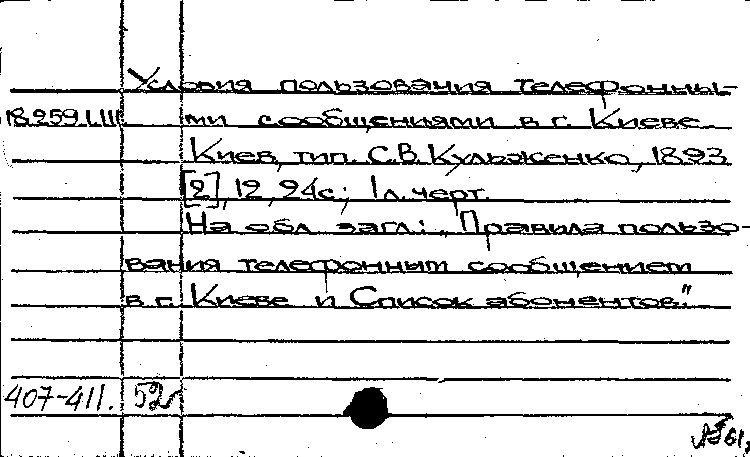 Условия пользования телефонны-
18.259.I.III ми сообщениями в г. Киеве
Киев, тип. С.В. Кульженко, 1893
[2], 12, 24с.; 1л. черт.
На обл. загл.: „Правила пользо-
вания телефонным сообщением
в г. Киеве и Список абонентов."
407-411. 52г